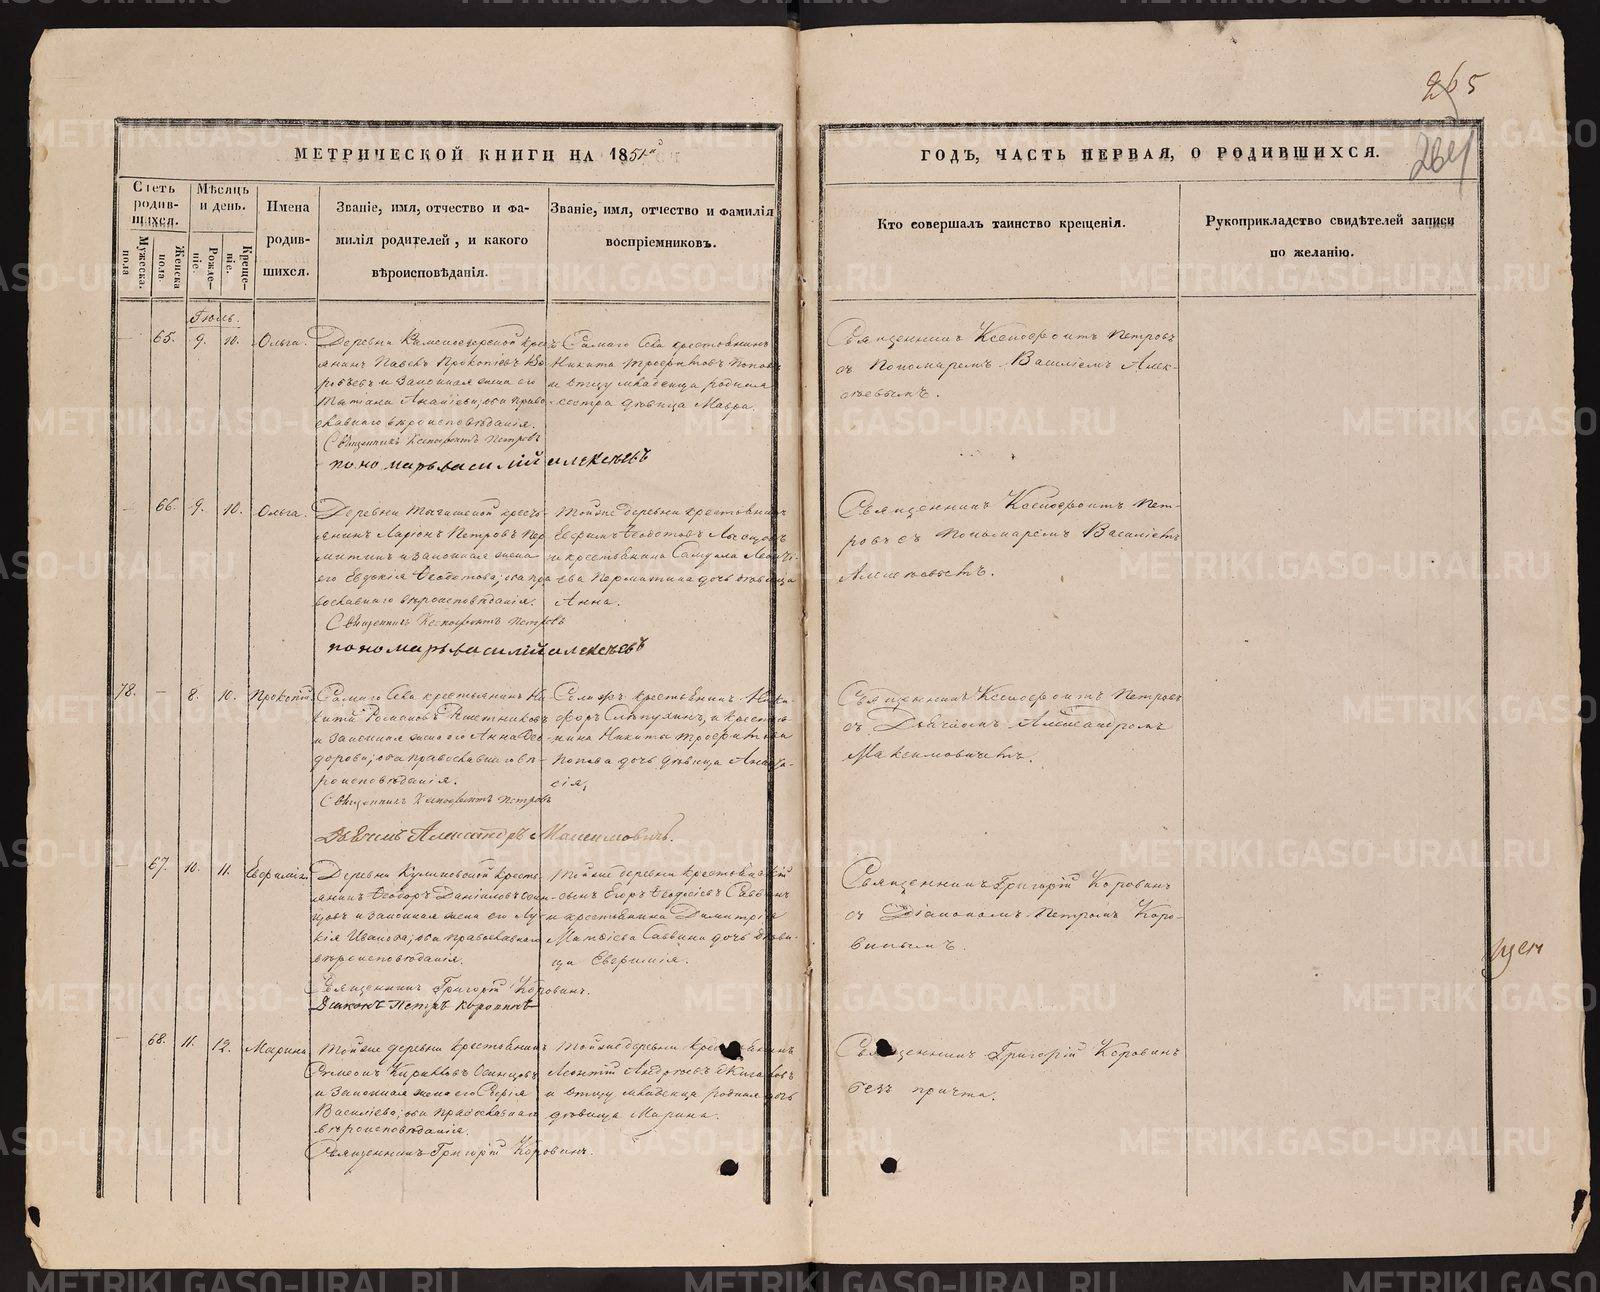 265
264
МЕТРИЧЕСКОЙ КНИГИ НА 1851й
ГОДЪ, ЧАСТЬ ПЕРВАЯ, О РОДИВШИХСЯ.
Счетъ родившихся.
Мужеска пола
Женска пола
Мѣсяцъ и день.
Рожденіе.
Крещеніе.
Имена родившихся.
Званіе, имя, отчество и фамилія родителей, и какого вѣроисповѣданія.
Званіе, имя, отчество и фамилія воспріемниковъ.
Кто совершалъ таинство крещенія.
Рукоприкладство свидѣтелей записи по желанію.
Іюль.
65. 9. 10. Ольга.
Деревни
янинъ Павелъ Прокопіевъ
и законная жена его
Татіана оба право-
славнаго вѣроисповѣданія.
Священникъ Ксенофонтъ Петровъ
пономарь василій алексѣевъ
Самаго Села крестьянинъ
Никита Трофимовъ Поповъ
и отцу младенца родная
сестра дѣвица Мавра.
Священникъ Ксенофонтъ Петровъ
съ Пономаремъ Василіемъ Алек-
сѣевымъ.
66. 9. 10. Ольга.
Деревни
янинъ Ларіонъ Петровъ Пер
митинъ и законная жена
его Евдокія Ѳеодотова; оба пра
вославнаго вѣроисповѣданія.
Священникъ Ксенофонтъ Петровъ
пономарь василій алексѣевъ
Той же деревни крестьянинъ
Ефимъ Ѳеодотовъ
и крестьянина Самуила
ева Пермитина дочь дѣвица
Анна.
Священникъ Ксенофонтъ Пет-
ровъ съ Пономаремъ Василіемъ
Алексѣевымъ.
78. — 8. 10. Прокопій
Самаго Села крестьянинъ Ни
кита Романовъ
и законная жена его Анна Ѳео-
дорова; оба православнаго вѣ-
роисповѣданія.
Священникъ Ксенофонтъ Петровъ
Дьячекъ Александръ Максимовичъ.
Села крестьянинъ Ники-
форъ и крестья-
нина Никиты Трофимова
Попова дочь дѣвица Анаста-
сія.
Священникъ Ксенофонтъ Петровъ
съ Дьячкомъ Александромъ
Максимовичемъ.
67. 10. 11. Евфимія
Деревни Куликовской кресть-
янинъ Ѳеодоръ Даніиловъ Осин-
цовъ и законная жена его Лу-
кія Иванова; оба православнаго
вѣроисповѣданія.
Священникъ Григорій Коровинъ.
Діаконъ Петръ Коровинъ
Той же деревни крестьянскій
сынъ Егоръ Ѳеодосіевъ Саввинъ
и крестьянина Димитрія
Матвіева Саввина дочь дѣви-
ца Евфимія.
Священникъ Григорій Коровинъ
съ Діакономъ Петромъ Коро-
винымъ.
68. 11. 12. Марина
Той же деревни крестьянинъ
Симеонъ Кириловъ Осинцовъ
и законная жена его Софія
Василіева; оба православнаго
вѣроисповѣданія.
Священникъ Григорій Коровинъ.
Той же деревни крестьянинъ
Леонтій Андреевъ
и отцу младенца родная дочь
дѣвица Марина.
Священникъ Григорій Коровинъ
безъ причта.
METRIKI.GASO-URAL.RU